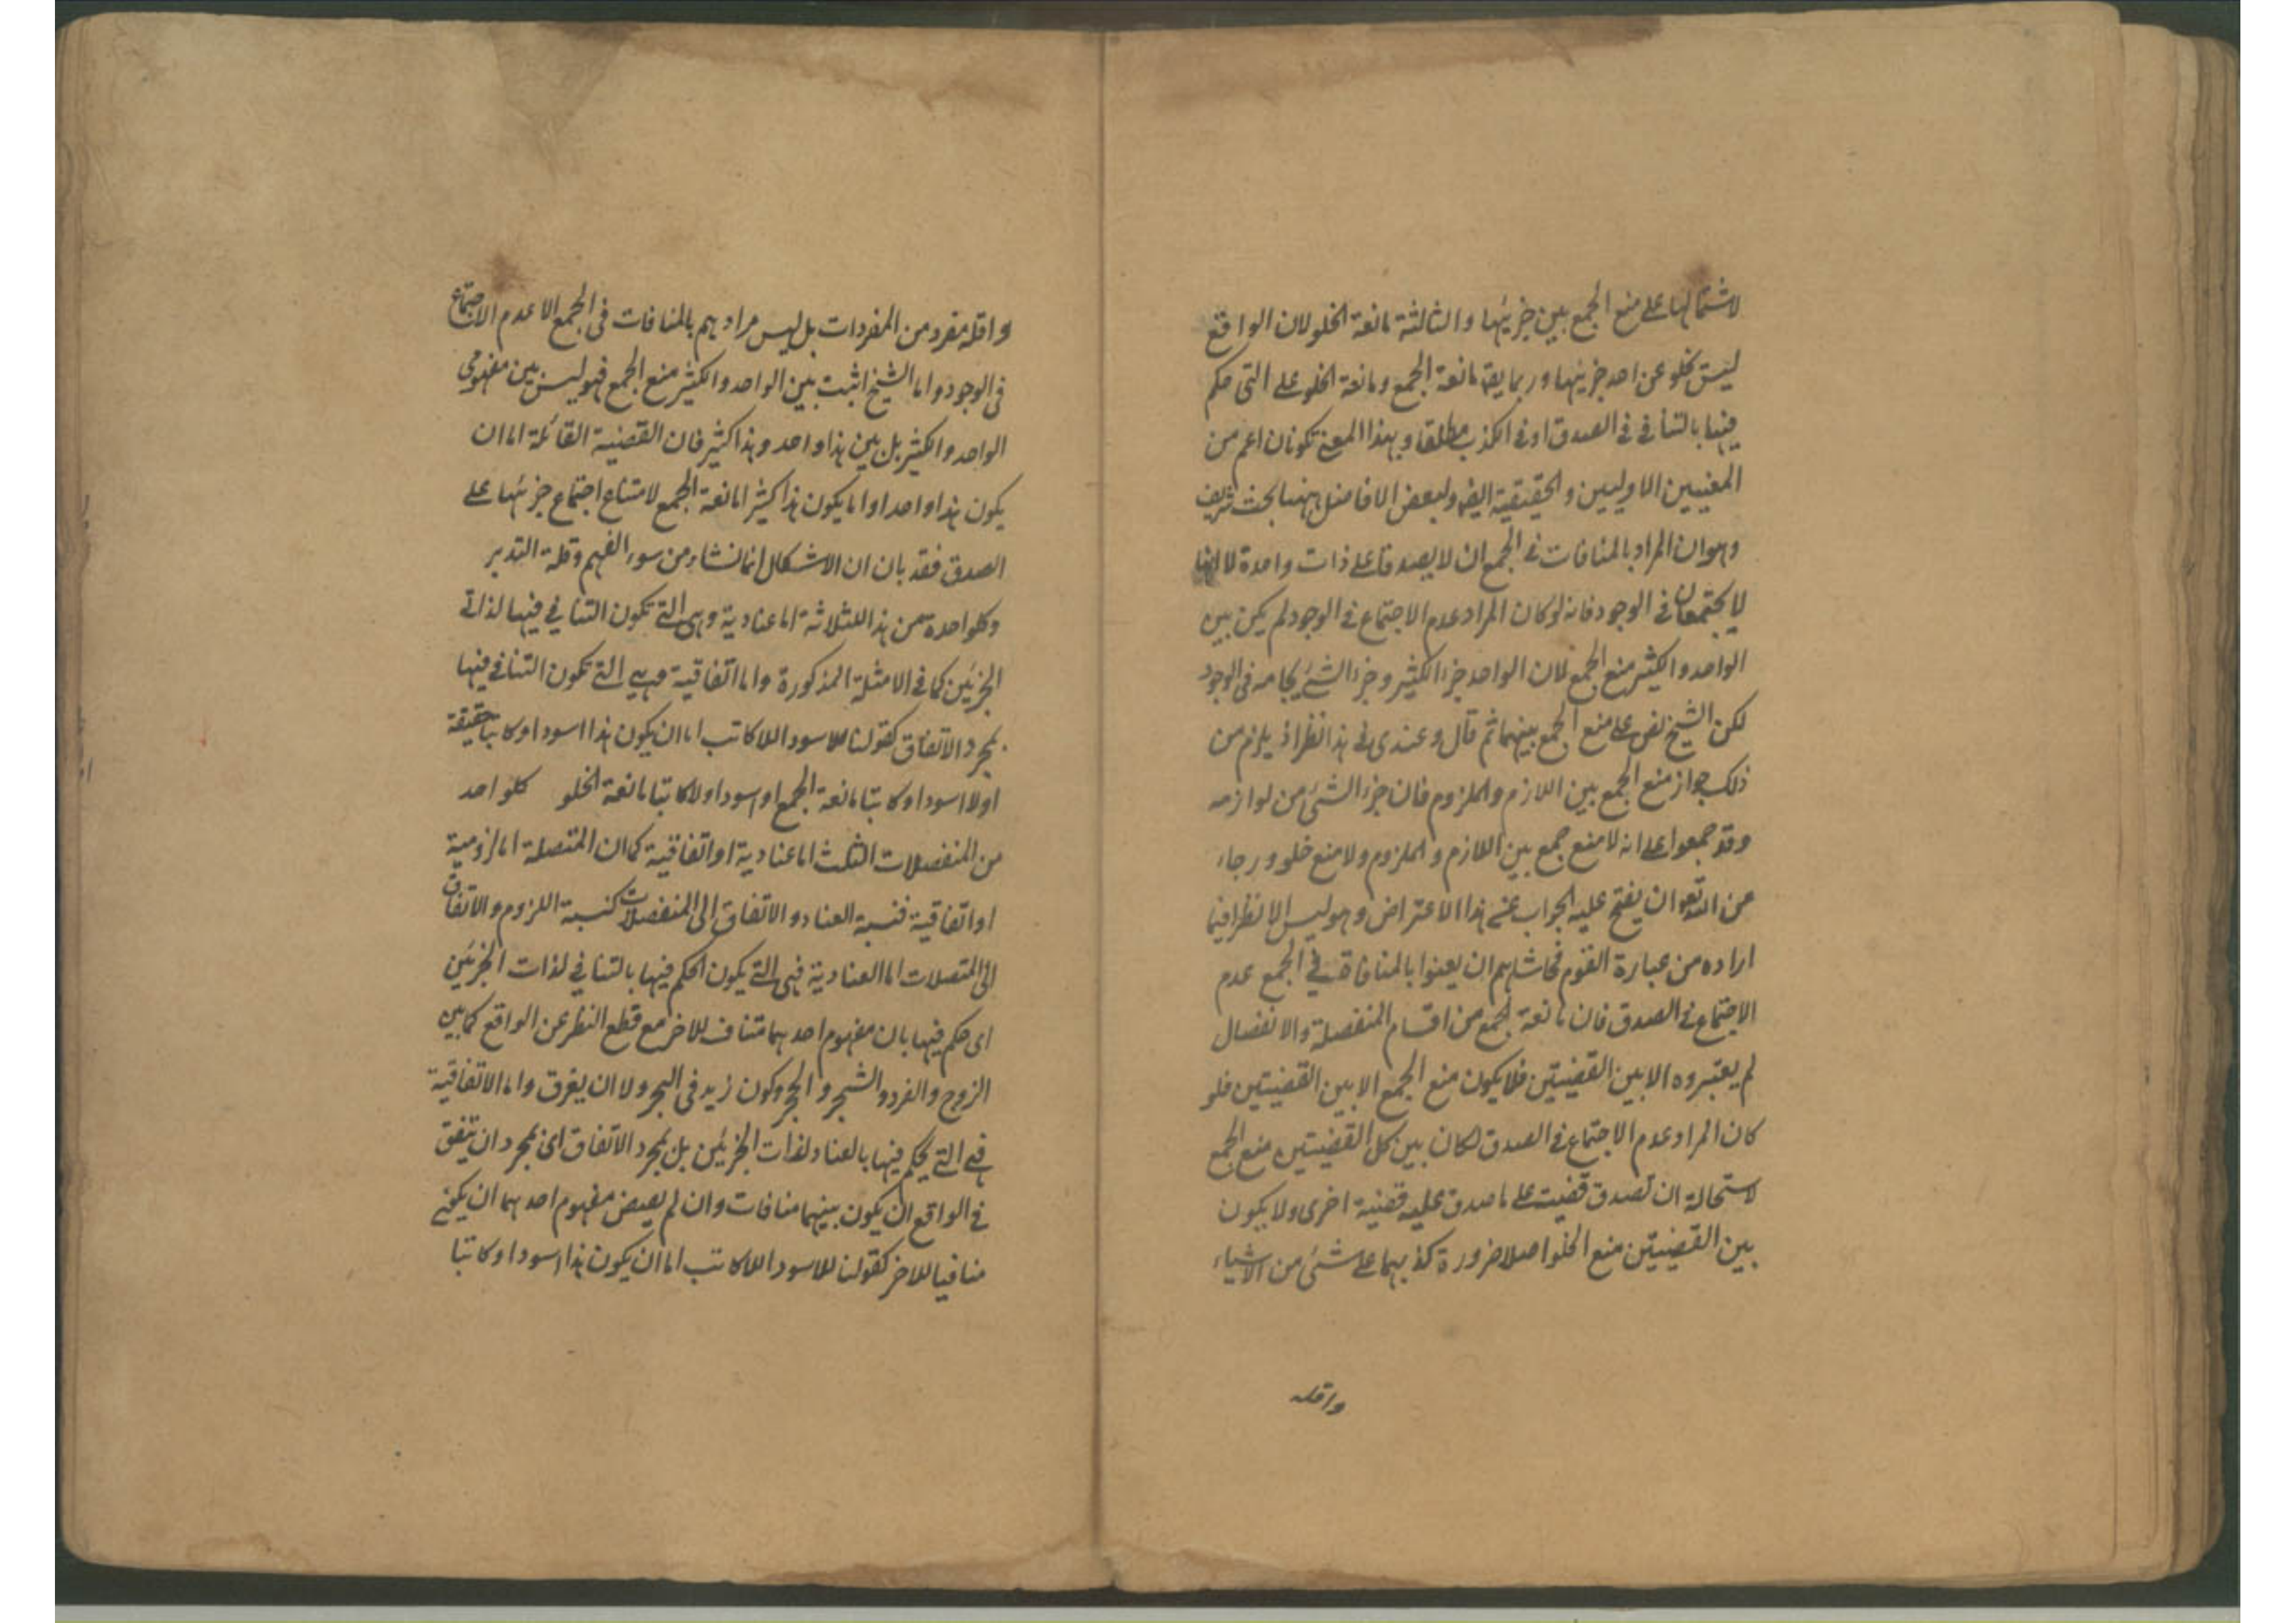 لاشتمالها على منع الجمع بين جزئيها والثالثة مانعة الخلو لان الواقع
ليس تخلو عن احد جزئيها وربما يقة مانعة الجمع ومانعة الخلو على التى حكم
فيها بالتنافى فى الصدق او فى الكذب مطلقا وبهذا المعنى تكونان اعم من
المعنيين الاوليين والحقيقية ايضا ولبعض الافاضل ههنا بحث شريف
وهو ان المراد بالمنافات فى الجمع ان لا يصدقا على ذات واحدة لا انها
لا يجتمعان فى الوجود فانه لو كان المراد عدم الاجتماع فى الوجود لم يكن بين
الواحد والكثير منع الجمع لان الواحد جزء الكثير وجزء الشئ يجامعه فى الوجود
لكن الشيخ نص على منع الجمع بينهما ثم قال وعندى فى هذا نظر اذ يلزم من
ذلك جواز منع الجمع بين اللازم والملزوم فان جزء الشئ من لوازمه
وقد جمعوا على انه لا منع جمع بين اللازم والملزوم ولا منع خلو ورجاء
من الله تعم ان يفتح عليه الجواب عن هذا الاعتراض وهو ليس الا نظرا فيما
اراده من عبارة القوم فحاشاهم ان يعنوا بالمنافاة فى الجمع عدم
الاجتماع فى الصدق فان مانعة الجمع من اقسام المنفصلة والانفصال
لم يعتبروه الا بين القضيتين فلا يكون منع الجمع الا بين القضيتين فلو
كان المراد عدم الاجتماع فى الصدق لكان بين كل القضيتين منع الجمع
لاستحالة ان تصدق قضيت على ما صدق عليه قضية اخرى ولا يكون
بين القضيتين منع الخلو اصلا ضرورة كذبهما على شئ من الاشياء
واقله
واقله مفرد من المفردات بل ليس مرادهم بالمنافات فى الجمع الا عدم الاجتماع
فى الوجود واما الشيخ اثبت بين الواحد والكثير منع الجمع فهو ليس بين مفهومى
الواحد والكثير بل بين هذا واحد وهذا كثير فان القضية القائلة اما ان
يكون هذا واحدا واما يكون هذا كثيرا مانعة الجمع لامتناع اجتماع جزئيها على
الصدق فقد بان ان الاشكال انما نشاء من سوء الفهم وقلة التدبر
وكلواحدة من هذا الثلاثة اما عنادية وهى التى تكون التنافى فيها لذاتى
الجزئين كما فى الامثلة المذكورة واما اتفاقية وهى التى تكون التنافى فيها
بمجرد الاتفاق كقولنا للاسود اللاكاتب اما ان يكون هذا اسود او كاتبا حقيقة
اولا اسود او كاتبا مانعة الجمع او اسود اولا كاتبا مانعة الخلو كلواحد
من المنفصلات الثلث اما عنادية او اتفاقية كما ان المتصلة اما لزومية
او اتفاقية فنسبة العناد والاتفاق الى المنفصلات كنسبة اللزوم والاتفاق
الى المتصلات اما العنادية فهى التى يكون الحكم فيها بالتنافى لذات الجزئين
اى حكم فيها بان مفهوم احدهما متناف للاخر مع قطع النظر عن الواقع كما بين
الزوج والفرد والشجر والحجر وكون زيد فى البحر ولا ان يغرق واما الاتفاقية
فهى التى يحكم فيها بالعناد لذات الجزئين بل بمجرد الاتفاق اى بمجرد ان يتفق
فى الواقع ان يكون بينهما منافات وان لم يعيض مفهوم احدهما ان يكون
منافيا للاخر كقولنا للاسود اللاكاتب اما ان يكون هذا اسود او كاتبا